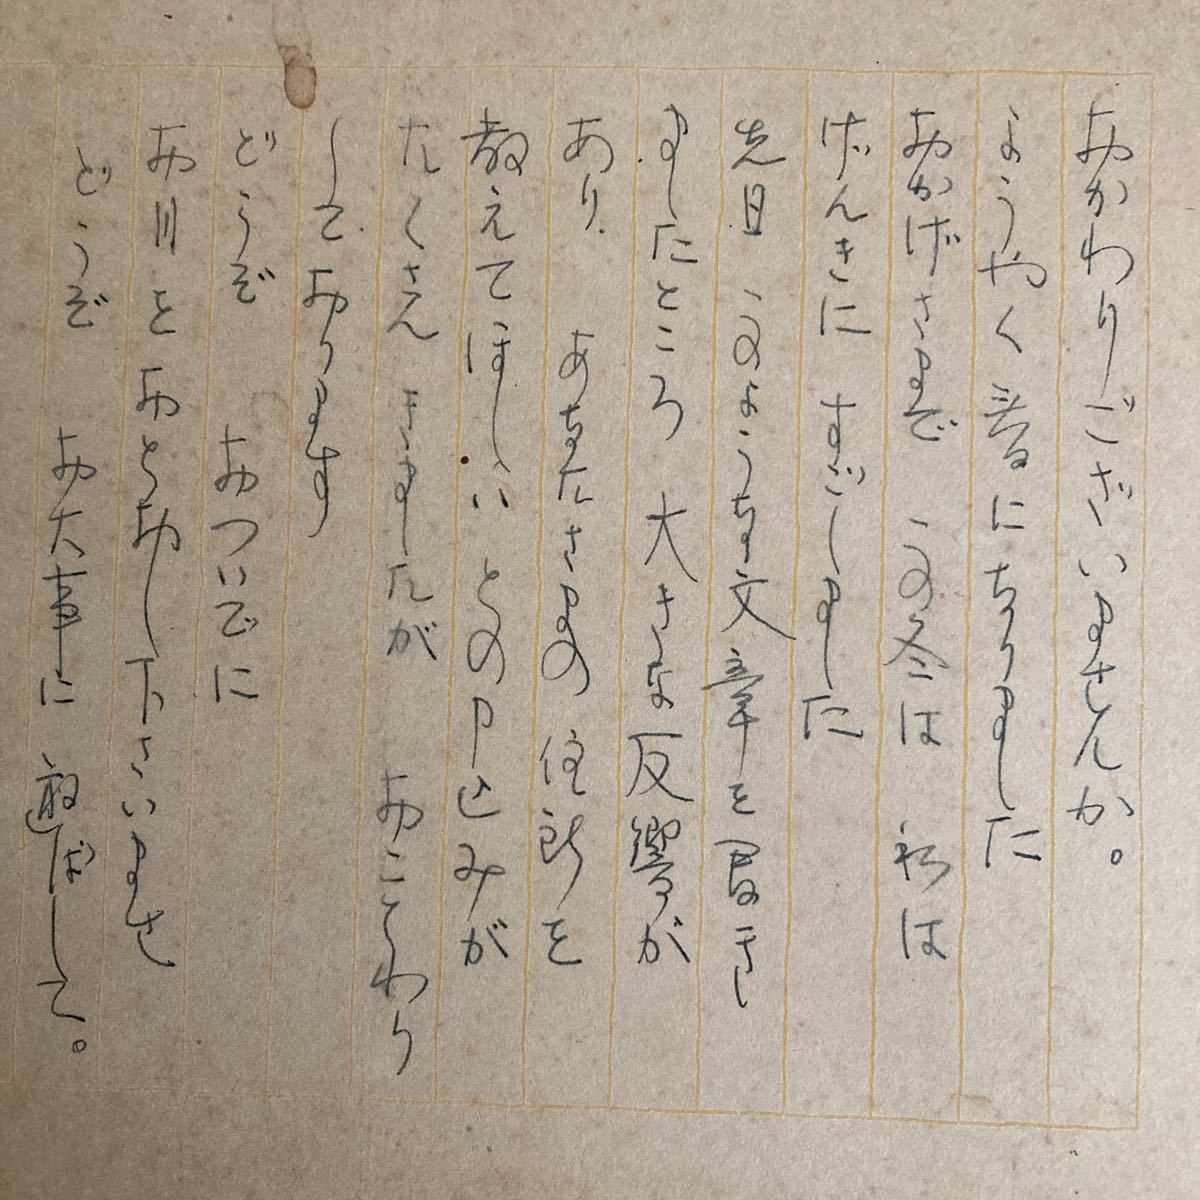 おかわりございませんか。
ようやく春になりました
おかげさまで この冬は 私は
げんきに すごしました
先日 このような文章を書きし
ましたところ 大きな反響が
あり あなたさまの 住所を
教えてほしい との申込みが
たくさん きましたが おことわり
しております
どうぞ おついでに
お目をおとおし下さいませ
どうぞ お大事に 遊ばして。